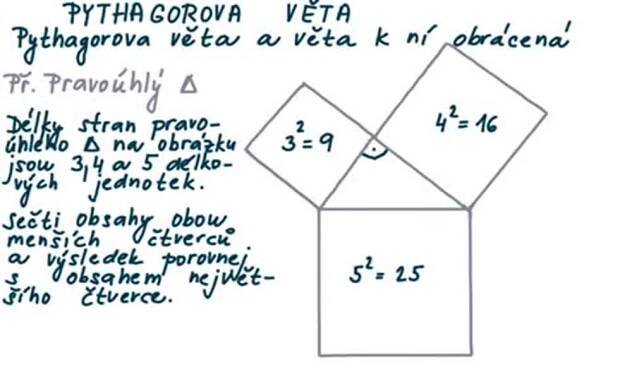 PYTHAGOROVA VĚTA
Pythagorova věta a věta k ní obrácená
Př. Pravoúhlý Δ
Délky stran pravo-
úhlého Δ na obrázku
jsou 3,4 a 5 délko-
vých jednotek.
Sečti obsahy obou
menších čtverců
a výsledek porovnej
s obsahem největ-
šího čtverce.
3² = 9
4² = 16
5² = 25